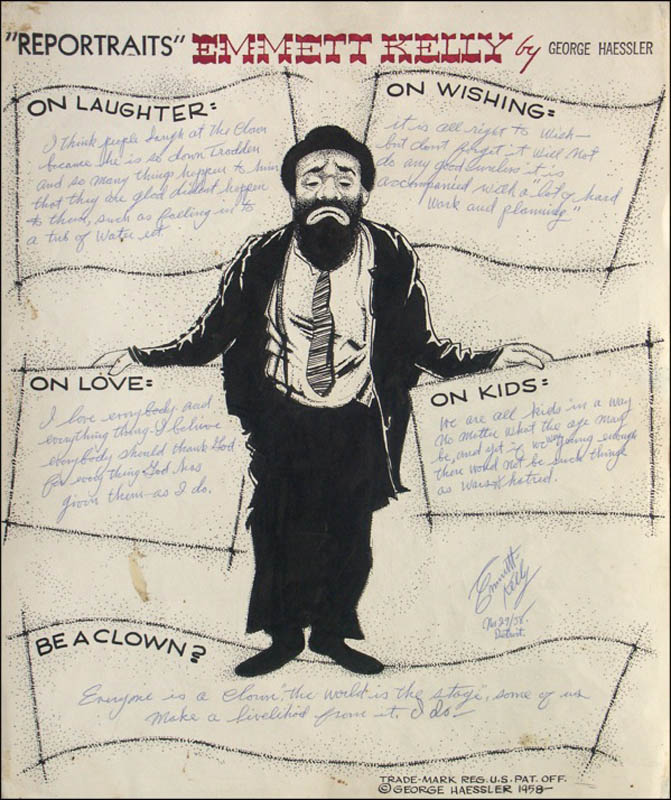 "REPORTRAITS" EMMETT KELLY by GEORGE HAESSLER
ON LAUGHTER:
I think people laugh at the Clown
because he is so down Trodden
and so many things happen to him
that they are glad dident happen
to them, such as falling in to
a tub of Water ect.
ON WISHING:
it is all right to Wish—
but dont forget it Will Not
do any good unless it is
accompanied with a "lot of hard
Work and planning"
ON LOVE:
I love everybody and
everything thing I believe
everybody should thank God
for every thing God has
given them—as I do.
ON KIDS:
We are all kids in a way
No Matter What the age may
be, and yet if we were young enough
there would not be such things
as Wars & hatred.
Emmett
Kelly
29/58
Detroit
BE A CLOWN?
Everyone is a Clown, "the world is the stage", some of us
Make a livelihod from it. I do—
TRADE-MARK REG. U.S. PAT. OFF.
© GEORGE HAESSLER 1958—